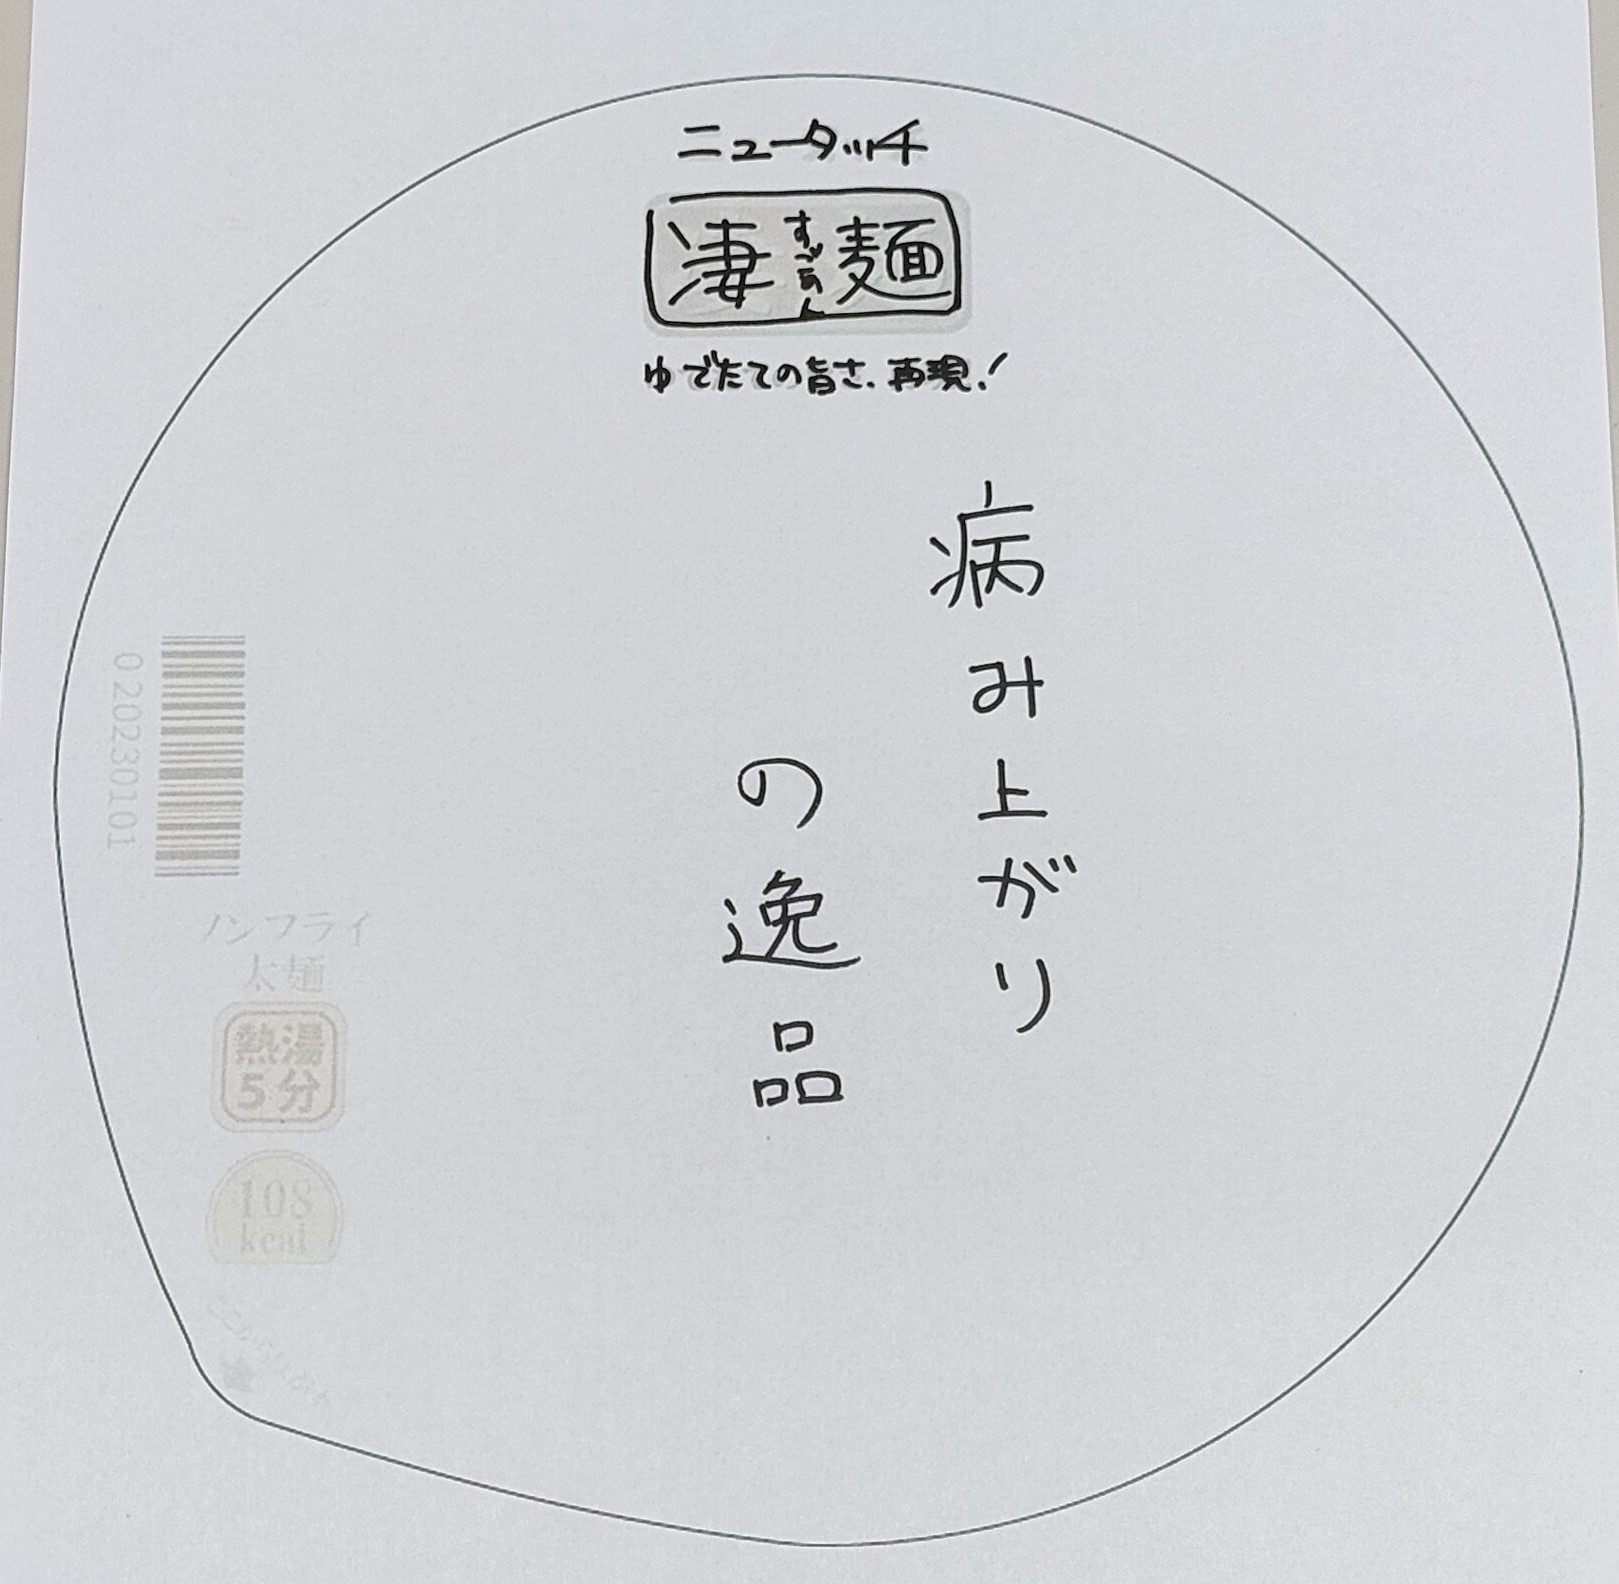 ニュータッチ
凄麺
すごめん
ゆでたての旨さ、再現!
病み上がり
の逸品
0 20230101
ノンフライ
太麺
熱湯
5分
108
kcal